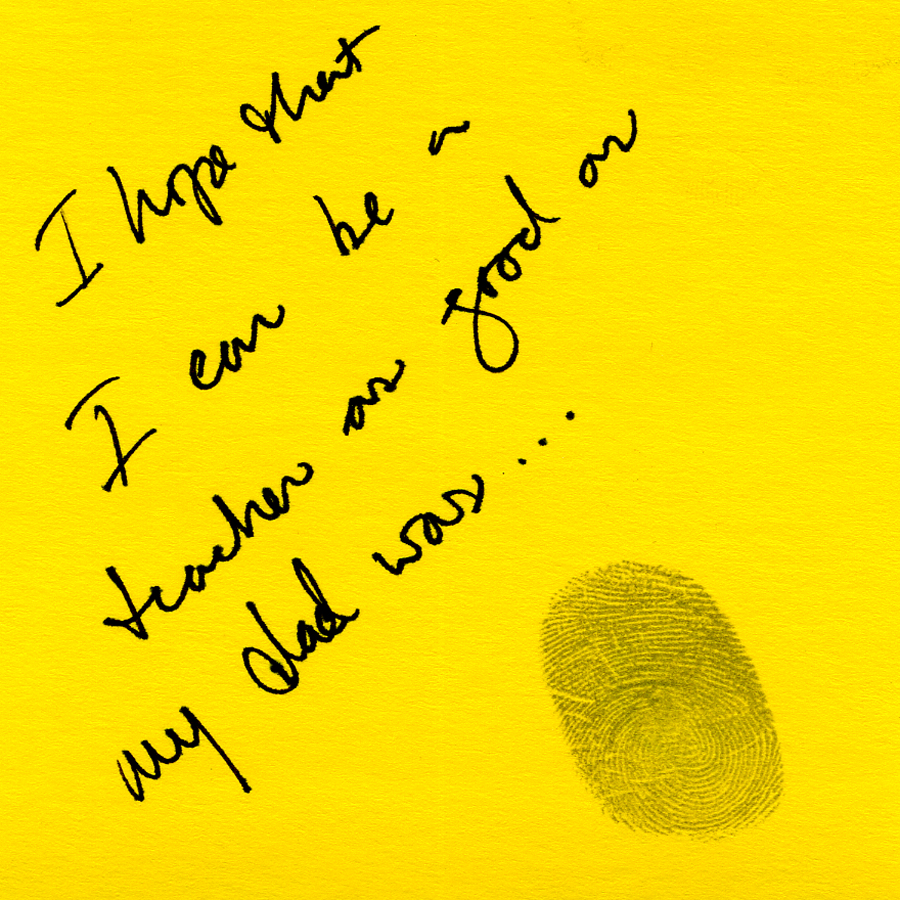 I hope that
I can be a
teacher as good as
my dad was...